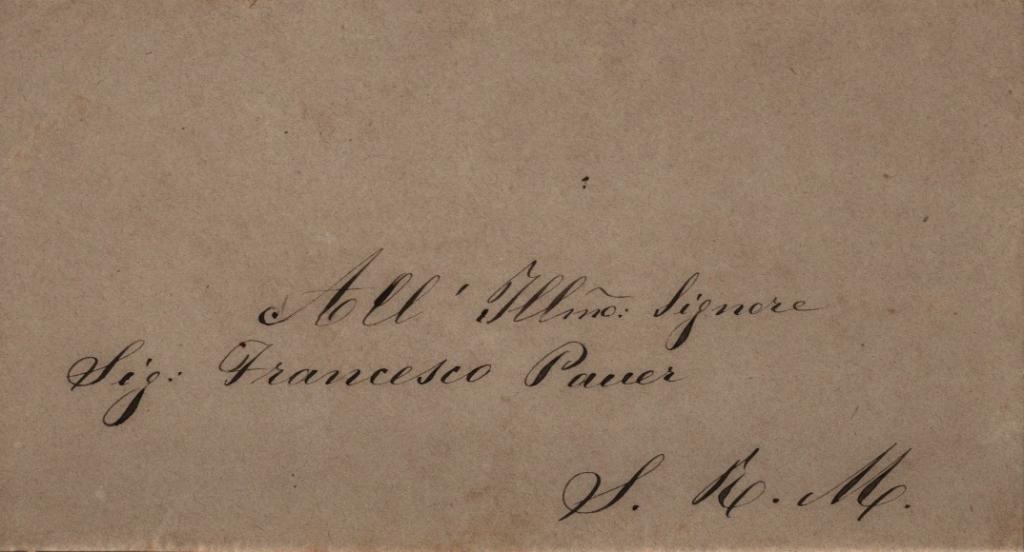 All' Illm̃o: Signore
Sig: Francesco Pauer
S. R. M.